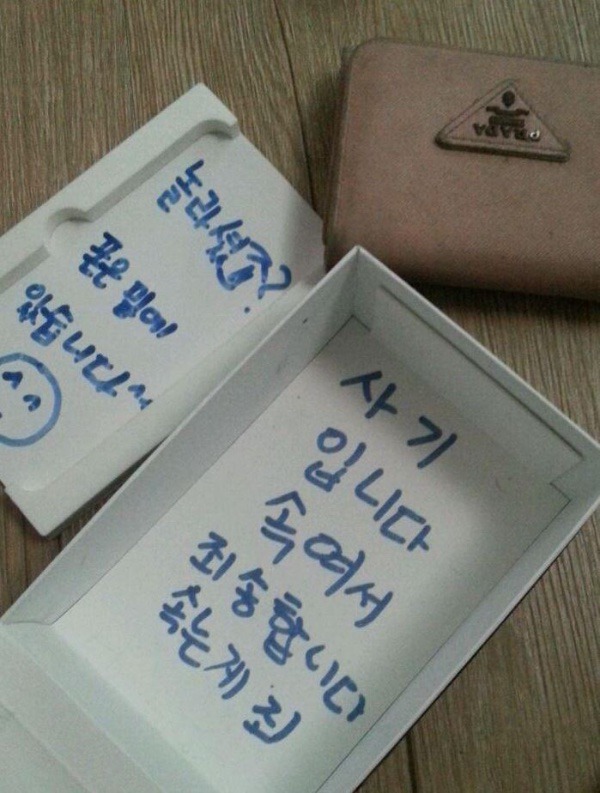 놀라셨죠?
폰은 밑에
있습니다~
사기
입니다
속여서
죄송합니다
속는게 죄
PRADA